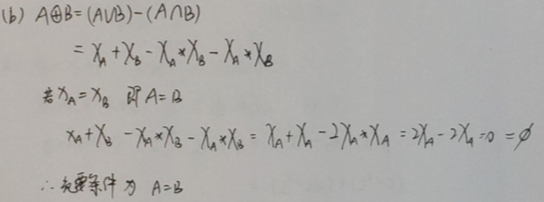 (b) A⊕B=(A∪B)-(A∩B)
= χ_A + χ_B - χ_A * χ_B - χ_A * χ_B
若 χ_A = χ_B 即 A=B
χ_A + χ_B - χ_A * χ_B - χ_A * χ_B = χ_A + χ_A - 2χ_A * χ_A = 2χ_A - 2χ_A = 0 = ∅
∴ 充要条件为 A=B